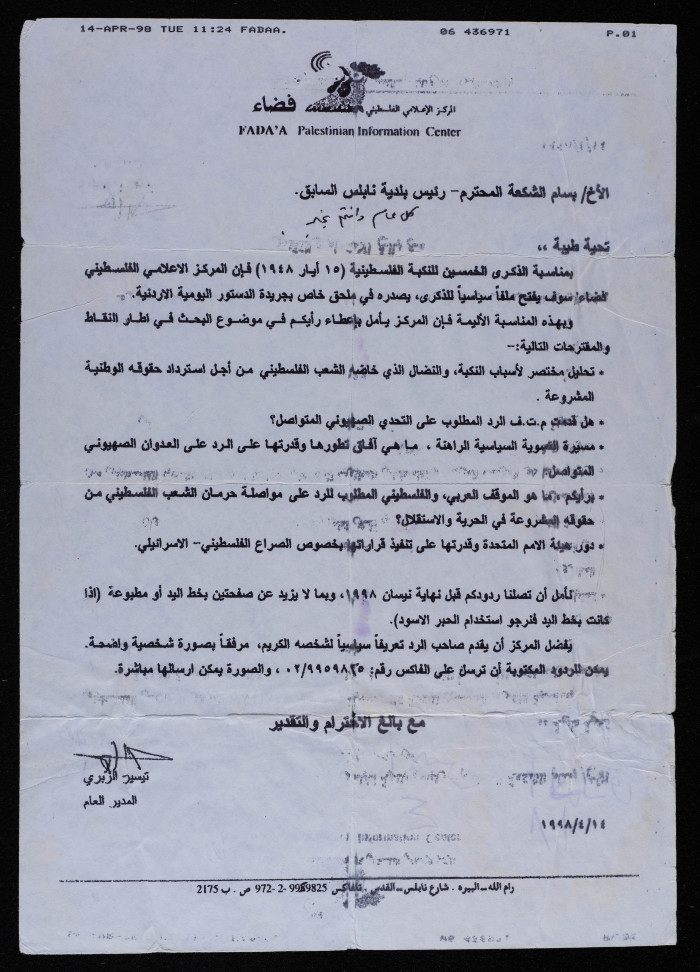 14-APR-98 TUE 11:24 FADAA. 06 436971 P.01
فضاء المركز الإعلامي الفلسطيني
FADA'A Palestinian Information Center
الأخ/ بسام الشكعة المحترم- رئيس بلدية نابلس السابق.
كل عام وانتم بخير
تحية طيبة ،،
بمناسبة الذكرى الخمسين للنكبة الفلسطينية (١٥ أيار ١٩٤٨) فإن المركز الاعلامي الفلسطيني
فضاء/ سوف يفتح ملفاً سياسياً للذكرى، يصدره في ملحق خاص بجريدة الدستور اليومية الاردنية.
وبهذه المناسبة الأليمة فإن المركز يأمل بإعطاء رأيكم في موضوع البحث في اطار النقاط
والمقترحات التالية:-
* تحليل مختصر لأسباب النكبة، والنضال الذي خاضه الشعب الفلسطيني من أجل استرداد حقوقه الوطنية
المشروعة .
* هل قدمت م.ت.ف الرد المطلوب على التحدي الصهيوني المتواصل؟
* مسيرة التسوية السياسية الراهنة ، ما هي آفاق تطورها وقدرتها على الرد على العدوان الصهيوني
المتواصل
* برأيكم ، ما هو الموقف العربي، والفلسطيني المطلوب للرد على مواصلة حرمان الشعب الفلسطيني من
حقوقه المشروعة في الحرية والاستقلال؟
* دور هيئة الامم المتحدة وقدرتها على تنفيذ قراراتها بخصوص الصراع الفلسطيني- الاسرائيلي.
نأمل أن تصلنا ردودكم قبل نهاية نيسان ١٩٩٨، وبما لا يزيد عن صفحتين بخط اليد أو مطبوعة (اذا
كانت بخط اليد فنرجو استخدام الحبر الاسود).
يفضل المركز أن يقدم صاحب الرد تعريفاً سياسياً لشخصه الكريم، مرفقاً بصورة شخصية واضحة.
يمكن للردود المكتوبة أن ترسل على الفاكس رقم: ٠٢/٩٩٥٩٨٢٥ ، والصورة يمكن ارسالها مباشرة.
مع بالغ الاحترام والتقدير
تيسير الزبري
المدير العام
١٩٩٨/٤/١٤
رام الله-البيره . شارع نابلس-القدس . تلفاكس 9959825 2- 972- ص . ب 2175